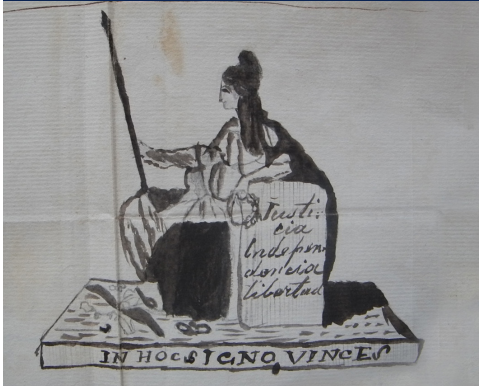 Justi-
cia
Indepen
dencia
libertad
IN HOC SIGNO, VINCES